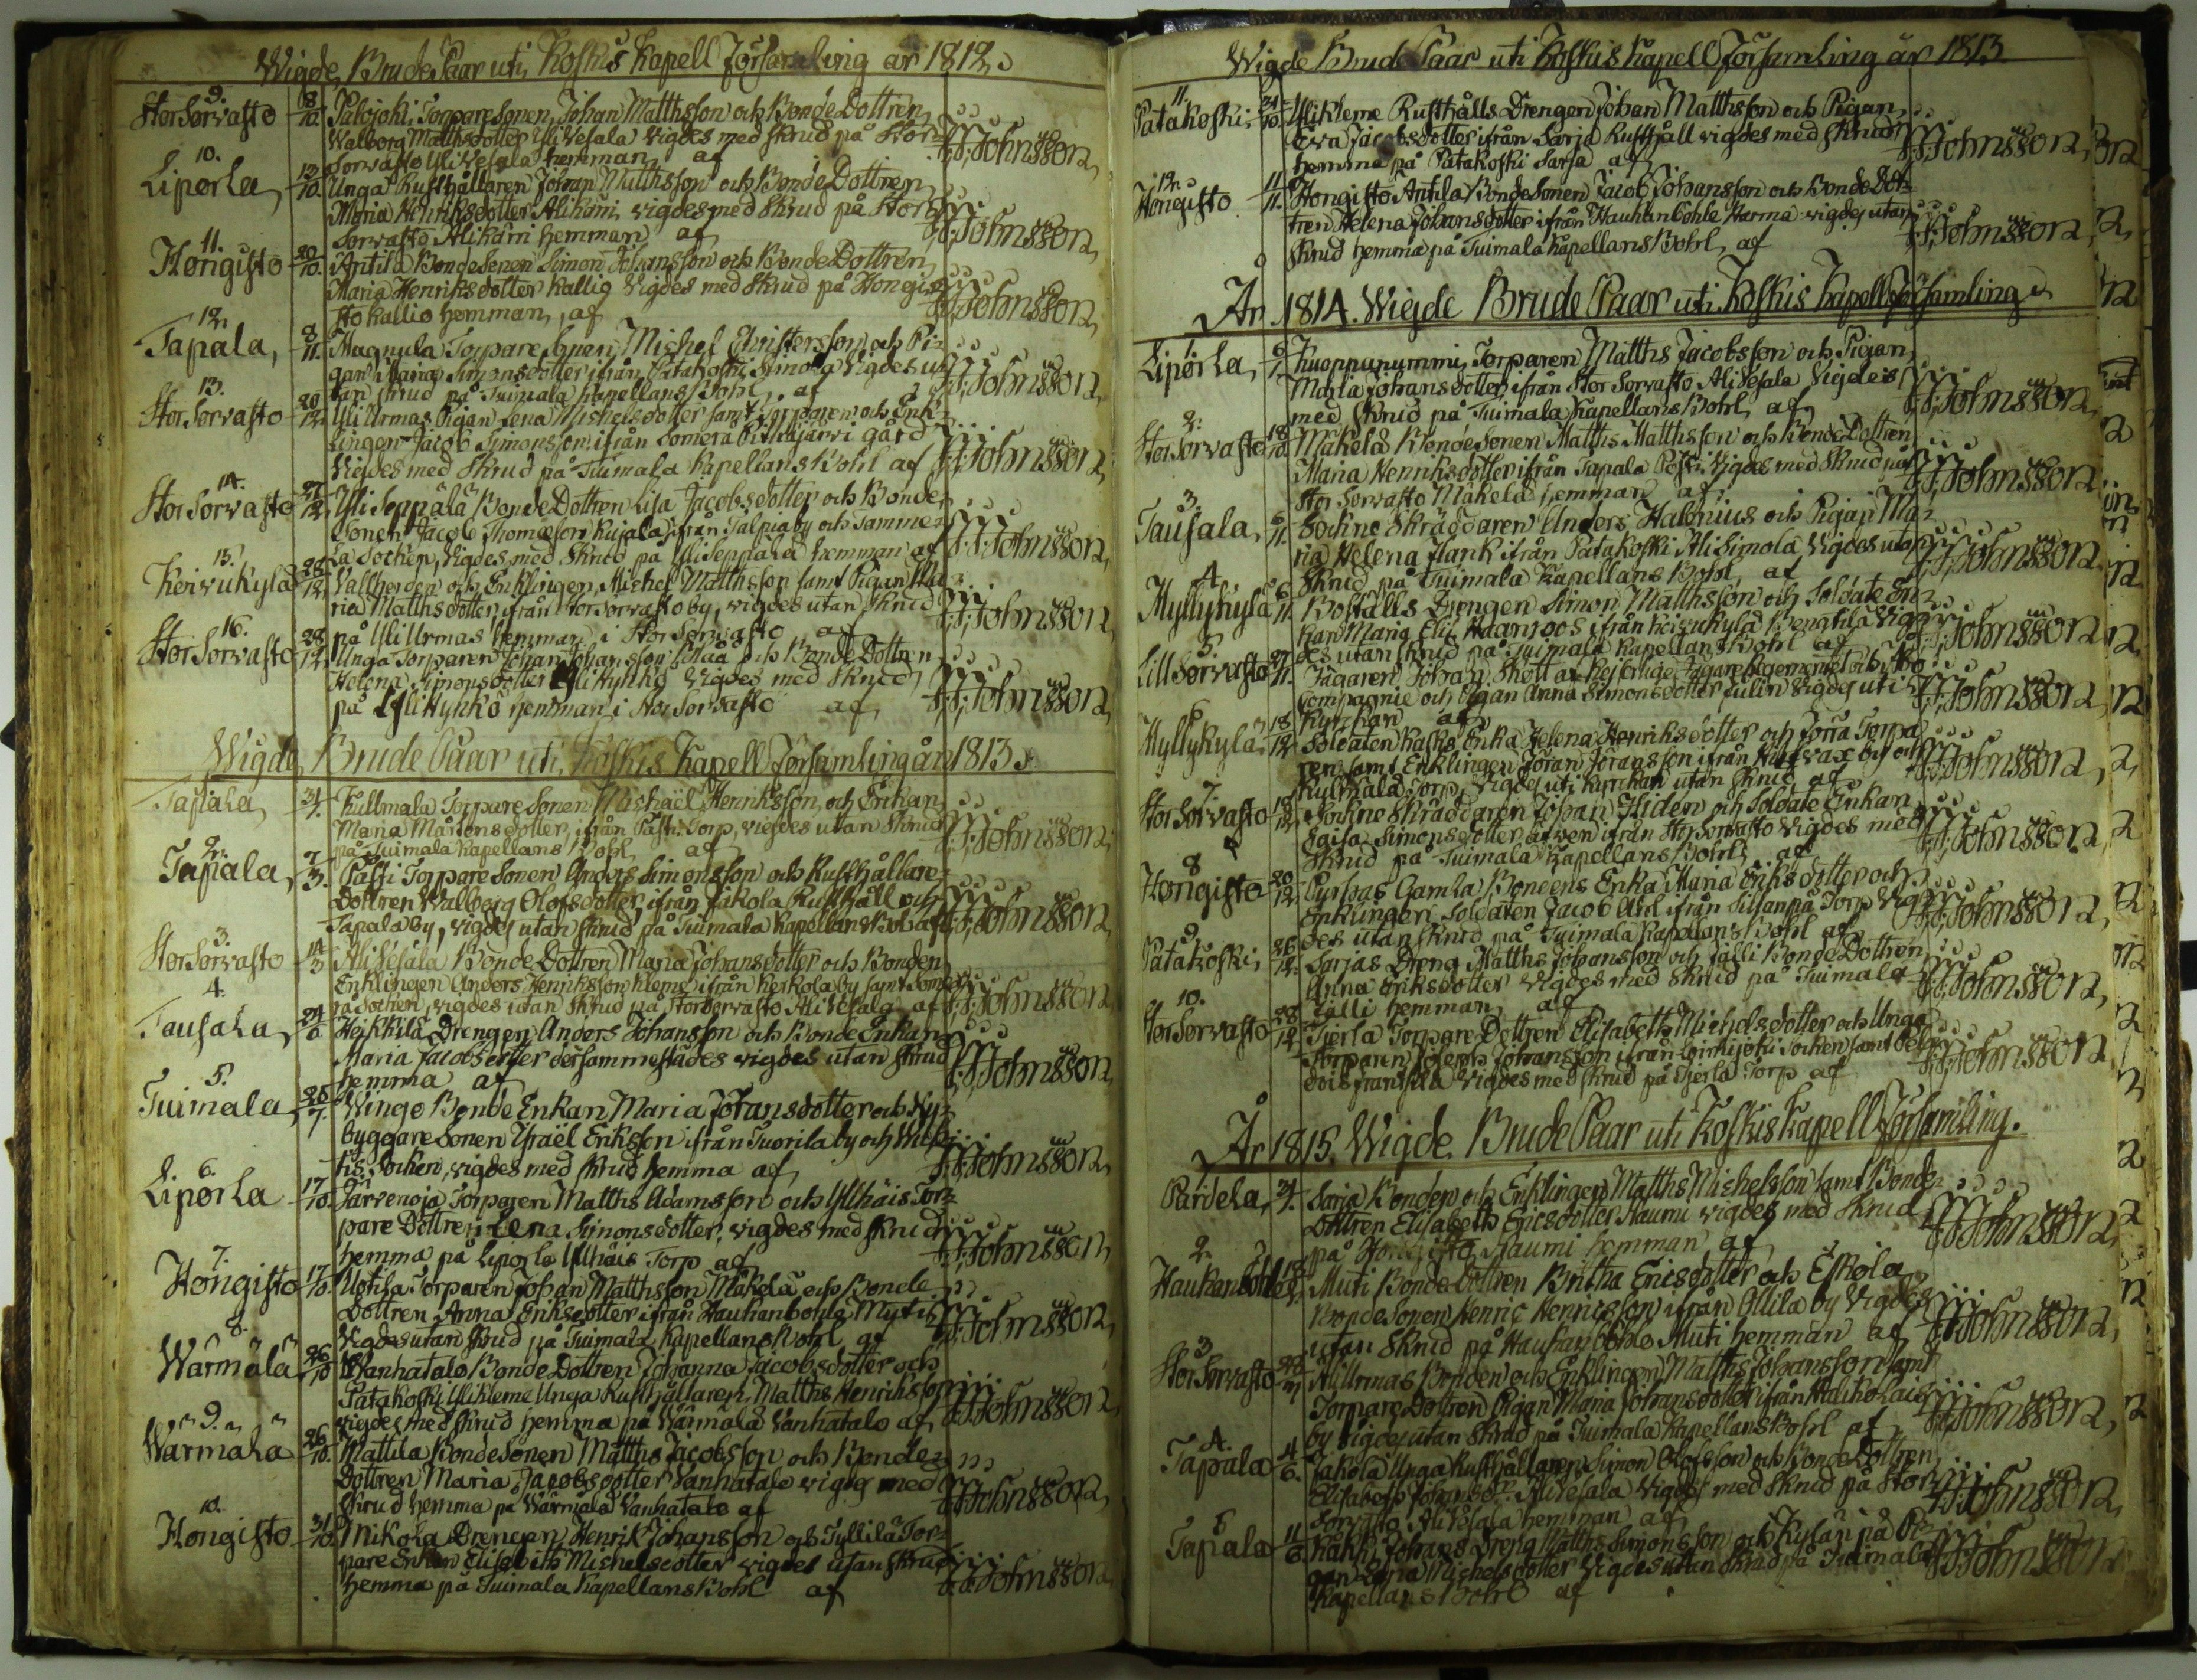 Wigde Brude Paar uti Koskis Kapell Församling år 1812.
9.
StorSorvasto 8/10. Palojoki TorpareSonen Johan Matthsson och BondeDottren
Walborg Matthsdotter YliVesala Vigdes med skrud på Stor
Sorvasto YliVesala hemman af J:J:Johnsson
10.
Liporla, 13/10. Unga Rusthållaren Johan Matthsson och BondeDottren
Maria Henriksdotter Alikärri vigdes med Skrud på Stor
Sorvasto Alikärri hemman af J:J:Johnsson
11.
Hongisto 20/10. Antila BondeSonen Simon Johansson och BondeDottren
Maria Henriksdotter Kallio Vigdes med Skrud på Hongi
sto Kallio hemman, af J:J:Johnsson
12.
Tapala, 8/11. Magnula TorpareSonen Michel Christersson och Pi
gan Maria Simonsdotter ifrån Patakoski Simola Vigdes u
tan skrud på Tuimala Kapellans Bohl, af J:J:Johnsson
13.
StorSorvasto 20/12. YliUrmas Pigan Lena Michelsdotter samt Torparen och Enk
lingen Jacob Simonsson ifrån Somero Pitkäjärvi gård
Vigdes med Skrud på Tuimala Kapellans Bohl af J:J:Johnsson
14.
StorSorvasto 27/12. YliSeppälä BondeDottren Lisa Jacobsdotter och Bonde
Sonen Jacob Thomasson Kujala ifrån Talpiaby och Tamme
la Socken, Vigdes med Skrud på YliSeppälä hemman af J:J:Johnsson
15.
Keivukylä 28/12. Vallherden och Enklingen Michel Matthsson samt Pigan Ma
ria Matthsdotter ifrån StorSorvasto by, vigdes utan Skrud
på YliUrmas hemman i StorSorvasto af J:J:Johnsson
16.
StorSorvasto 28/12. Unga Torparen Johan Johansson och BondeDottren
Helena Simonsdotter YliHyrkkö Vigdes med Skrud
på YliHyrkö hemman i StorSorvasto af J:J:Johnsson
Wigde Brude Paar uti Koskis Kapell Församling år 1813.
Tapala, 31/1. Kullmala TorpareSonen Michaël Henriksson och Enkan
Maria Mårtensdotter ifrån Påsti Torp, vigdes utan Skrud
på Tuimala Kapellans Bohl af J:J:Johnsson
2.
Tapala, 7/3. Påsti TorpareSonen Anders Simonsson och Rusthållare
Dottren Walborg Olofsdotter ifrån Jakola Rusthåll och
Tapala by, vigdes utan skrud på Tuimala Kapellans Bohl af J:J:Johnsson
3.
StorSorvasto 14/3 AliVesala BondeDottren Maria Johansdotter och Bonden
Enklingen Anders Henriksson Kleme ifrån Kerkola by samt Some
ro Socken, vigdes utan Skrud på StorSorvasto AliVesala af J:J:Johnsson
4.
Tausala, 24/6 Heikkilä Drengen Anders Johansson och BondeEnkan
Maria Jacobsdotter dersammestädes vigdes utan skrud
hemma af J:J:Johnsson
5.
Tuimala 25/7. Wingo BondeEnkan Maria Johansdotter och Ny
byggareSonen Israël Eriksson ifrån Tuorila by och
Socken, vigdes med skrud hemma af J:J:Johnsson
6.
Liporla 17/10. Järvenoja Torparen Matths Adamsson och Yllhäis Tor
pare Dottren Lena Simonsdotter, vigdes med skrud
hemma på Liporla Yllhäis Torp af J:J:Johnsson
7.
Hongisto 17/10. Uotila Torparen Johan Matthsson Mäkelä och Bonde
Dottren Anna Eriksdotter ifrån Hauhanbohle Muti
Vigdes utan skrud på Tuimala Kapellans Bohl af J:J:Johnsson
8.
Wärmälä 26/10 Wanhatalo BondeDottren Johanna Jacobsdotter och
Patakoski Ylikleme Unga Rusthållaren Matths Henriksson
vigdes med skrud hemma på Wärmälä Vanhatalo af J:J:Johnsson
9.
Wärmälä 26/10. Mattila BondeSonen Matths Jacobsson och Bonde
Dottren Maria Jacobsdotter Vanhatalo vigdes med
Skrud hemma på Wärmälä Vanhatalo af J:J:Johnsson
10.
Hongisto 31/10. Mikola Drengen Henrik Johansson och Tyllilä Tor
pareEnkan Elisabeth Michelsdotter vigdes utan Skrud
hemma på Tuimala Kapellans Bohl af J:J:Johnsson
Wigde Brude Paar uti Koskis Kapell Församling år 1813
11.
Patakoski, 31/10. Ylikleme Rusthålls Drengen Johan Matthsson och Pigan
Eva Jacobsdotter ifrån Sarja Rusthåll vigdes med Skrud
hemma på Patakoski Sarja af J:J:Johnsson
12.
Hongisto 11/11. Hongisto Antila BondeSonen Jacob Johansson och BondeDot
tren Helena Johansdotter ifrån Hauhanbohle Harma vigdes utan
skrud hemma på Tuimala Kapellans Bohl, af J:J:Johnsson
År 1814. Wigde Brude Paar uti Koskis Kapell församling
1.
Liporla, 6/1. Kuoppanummi Torparen Matths Jacobsson och Pigan
Maria Johansdotter ifrån StorSorvasto AliVesala Vigdes
med Skrud på Tuimala Kapellans Bohl, af J:J:Johnsson
2.
StorSorvasto 18/10. Mäkelä BondeSonen Matths Matthsson och BondeDottren
Maria Henriksdotter ifrån Tapala Påsti, Vigdes med Skrud på
StorSorvasto Mäkelä hemman af J:J:Johnsson
3.
Tausala, 6/11. Sockne Skräddaren Anders Halonius och Pigan Ma
ria Helena flank ifrån Patakoski AliSimola Vigdes utan
Skrud på Tuimala Kapellans Bohl, af J:J:Johnsson
4.
Myllykylä 6/11. Boställs Drengen Simon Matthsson och Soldate En
kan Maria Elis ifrån Keivukylä Vig
des utan skrud på Tuimala Kapellans Bohl af J:J:Johnsson
5.
LillSorvasto 27/11. Jägaren Johan Skott af Kejserlige Jägare Regementet och
Compagnie och Pigan Anna Simonsdotter Julin Vigdes uti
Kyrckan af J:J:Johnsson
6
Myllykylä 18/12. Soldaten Kasks Enka Helena Henriksdotter och förra Torpa
ren samt Enklingen Göran Göransson ifrån by och
Torp, Vigdes uti Kyrckan utan Skrud af J:J:Johnsson
7.
StorSorvasto 18/12. Sockne Skräddaren Johan Hiden och Soldate Enkan
Caisa Simonsdotter äfwen ifrån StorSorvasto Vigdes med
Skrud på Tuimala Kapellans Bohl, af J:J:Johnsson
8
Hongisto 20/12. Gamla Bondens Enka Maria Eriksdotter och
Enklingen Soldaten Jacob ifrån Torp Vig
des utan Skrud på Tuimala Kapellans Bohl af J:J:Johnsson
9.
Patakoski, 26/12. Sarjas Dreng Matths Johansson och Jälli BondeDottren
Anna Eriksdotter Vigdes med Skrud på Tuimala
Jälli hemman af J:J:Johnsson
10.
StorSorvasto 28/12. Tjerla Torpare Dottren Elisabeth Michelsdotter och Unga
Torparen Joseph Johansson ifrån Loimijoki Socken samt
Vigdes med skrud på Tjerla Torp af J:J:Johnsson
År 1815. Wigde Brude Paar uti Koskis Kapell Församling.
Pardela, 31/1. Sarja Bonden och Enklingen Matths Michelsson samt Bonde
Dottren Elisabeth Ericsdotter Haumi vigdes med Skrud
på Hongisto Haumi hemman af J:J:Johnsson
2.
Hauhanbohle Muti BondeDottren Britha Ericsdotter och Eskola
BondeSonen Henric Henricsson ifrån Ollila by Vigdes
utan Skrud på Hauhanbohle Muti hemman af J:J:Johnsson
3
StorSorvasto AliUrmas Bonden och Enklingen Matths Johansson samt
TorpareDottren Pigan Maria Johansdotter ifrån
by Vigdes utan Skrud på Tuimala Kapellans Bohl af J:J:Johnsson
4.
Tapala 4/6. Jakola Unga Rusthållaren Simon Olofsson och BondeDottren
Elisabeth AliVesala Vigdes med Skrud på Stor
Sorvasto AliVesala hemman af J:J:Johnsson
5
Tapala 11/6 Johans Dreng Matths Simonsson och på Pi
gan Maria Michelsdotter Vigdes utan Skrud på Tuimala
Kapellans Bohl af J:J:Johnsson